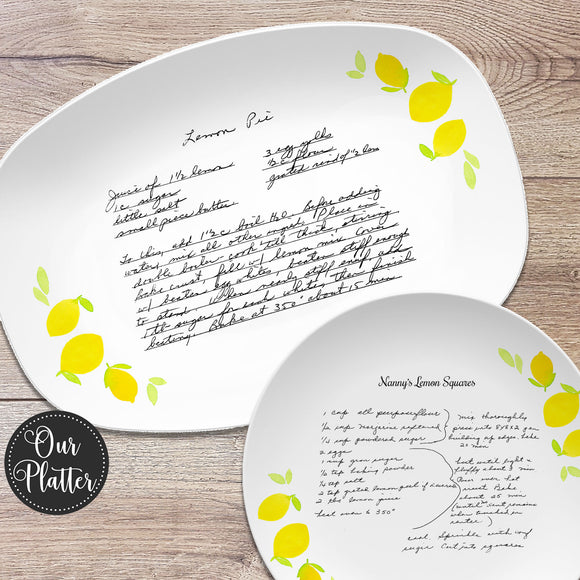 Lemon Pie
Juice of 1 1/2 lemon
1 c sugar
little salt
small piece butter
3 egg yolks
1/2 c flour
grated rind of 1/2 lem
To this, add 1 1/2 c boil H2O. Before adding
water, mix all other ingred. Place in
double boiler cook till thick, stirring
bake crust, fill w/ lemon mix cover
w/ beaten egg white, beaten stiff enough
to stand. When nearly stiff enuf, add
1 tb sugar for each white, then finish
beating. Bake at 350° about 15 min
Our
Platter
Nanny's Lemon Squares
1 cup all purpose flour
1/4 cup powdered sugar
2 eggs
1 cup gran sugar
1/2 tsp baking powder
1/4 tsp salt
2 tbs lemon juice
heat oven to 350°
mix thoroughly
press into 8x8x2 pan
building up edges bake
20 min
beat until light &
fluffy about 3 min
Pour over hot
crust Bake
about 25 min
until
when touched in
center
cool. Sprinkle with conf
sugar Cut into squares